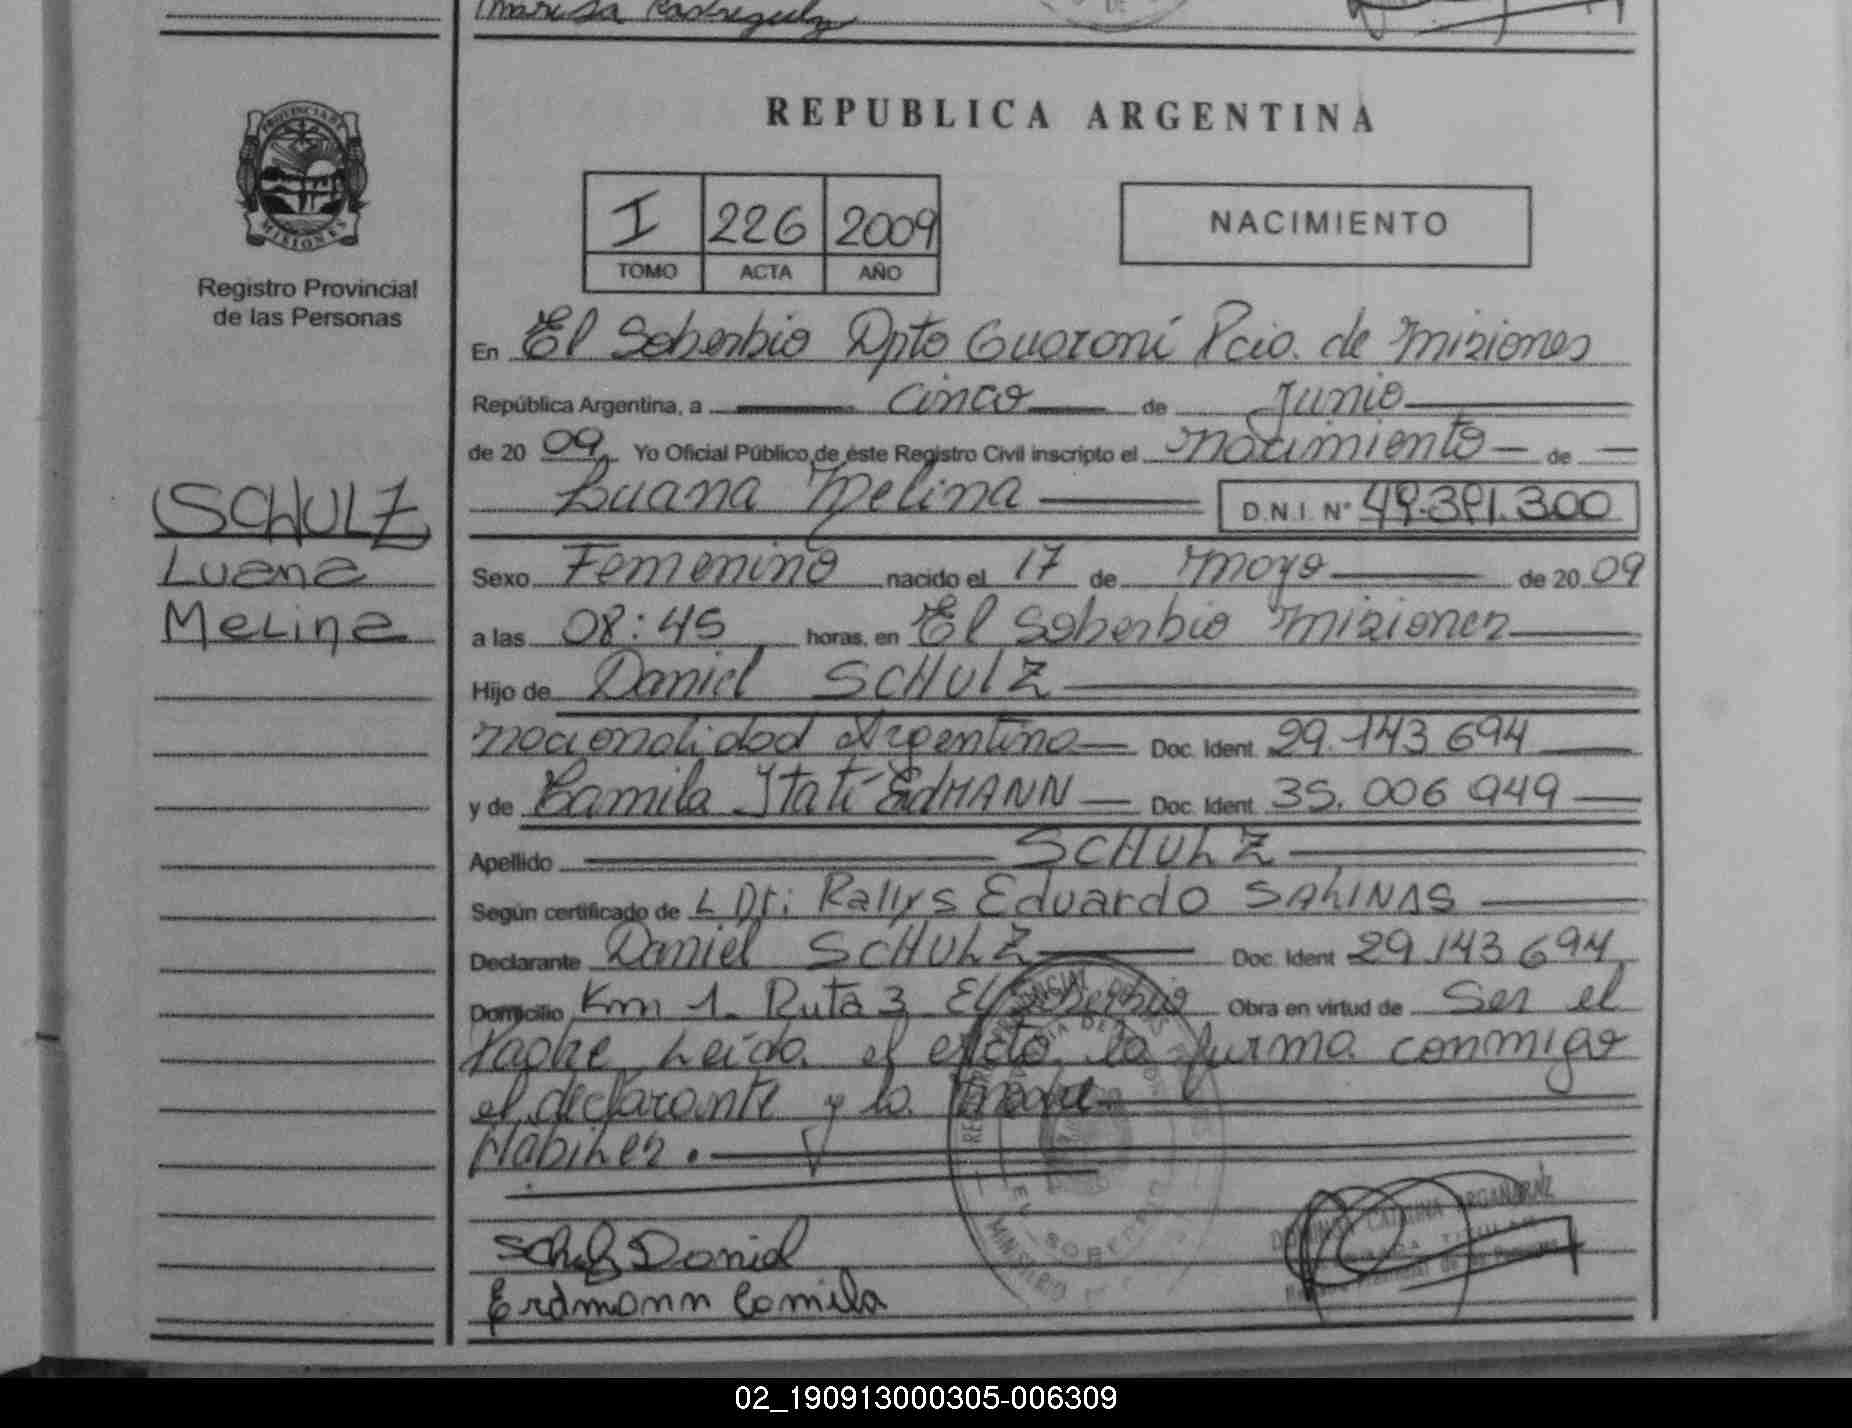 Marisa Rodriguez
REPUBLICA ARGENTINA
PROVINCIA DE
MISIONES
Registro Provincial
de las Personas
I 226 2009
TOMO ACTA AÑO
NACIMIENTO
En El Soberbio Dpto Guaraní Pcia. de Misiones
República Argentina, a cinco de Junio
de 2009 Yo Oficial Público de éste Registro Civil inscripto el nacimiento de
Luana Melina D.N.I. N° 49.391.300
SCHULZ
Luana
Melina
Sexo Femenino nacido el 17 de mayo de 2009
a las 08:45 horas, en El Soberbio Misiones
Hijo de Daniel SCHULZ
nacionalidad Argentina Doc. Ident. 29.143.694
y de Camila Itatí ErdMANN Doc. Ident. 35.006.949
Apellido SCHULZ
Según certificado de Rallys Eduardo SALINAS
Declarante Daniel SCHULZ Doc. Ident 29.143.694
Domicilio Km 1 Ruta 3 El Soberbio Obra en virtud de Ser el
Padre Leída el acta la firma conmigo
el declarante y la madre
EL SOBERBIO
MISIONES
CATALINA
Schulz Daniel
Erdmann Camila
02_190913000305-006309